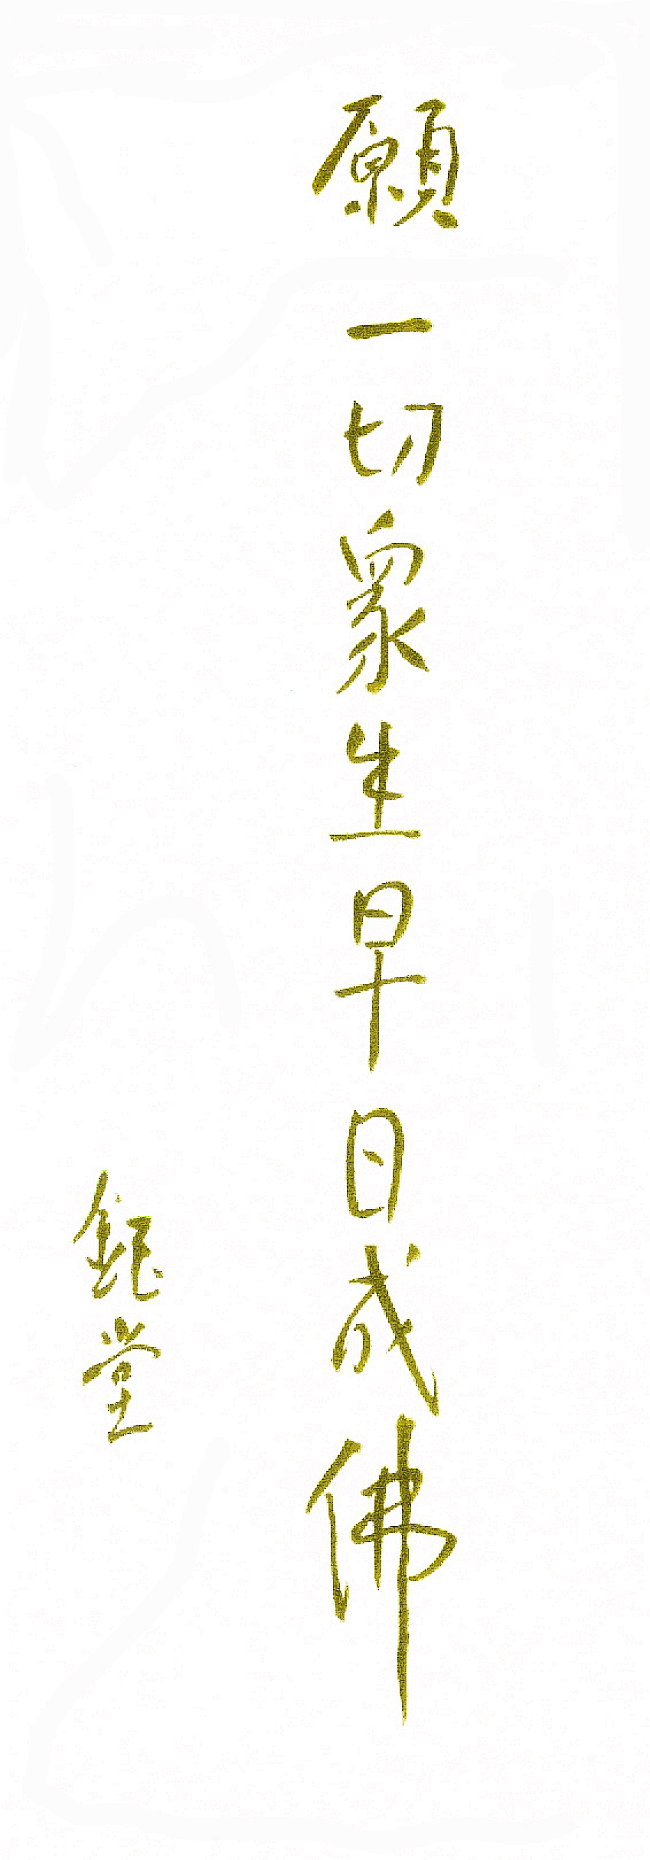 願一切眾生早日成佛
鉅堂